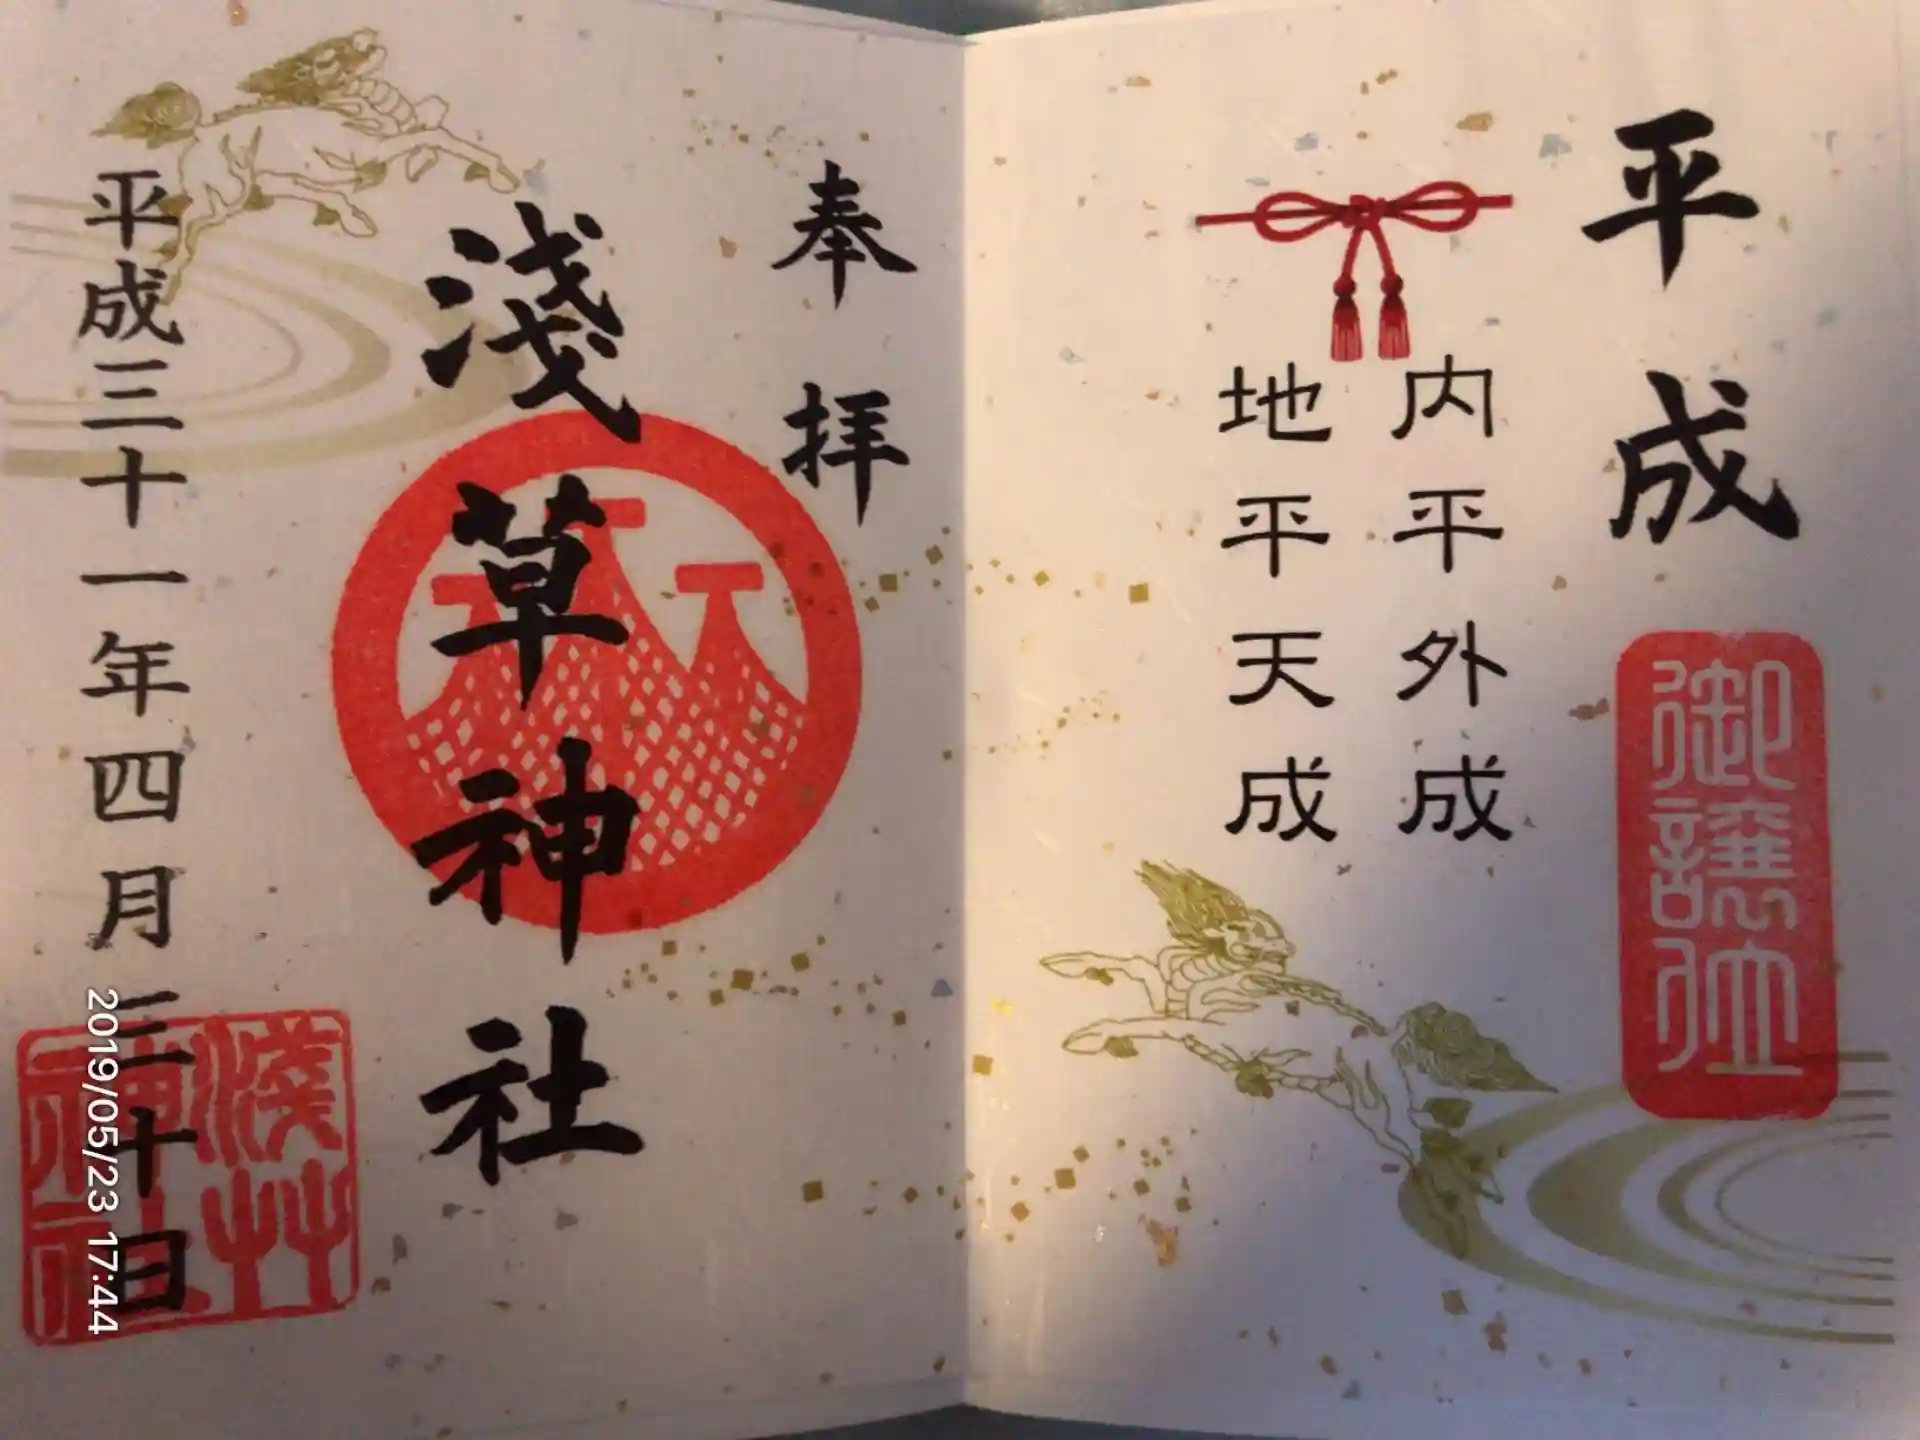 平成
御譲位
内平外成
地平天成
奉拝
淺草神社
平成三十一年四月三十日
淺草
神社
2019/05/23 17:44